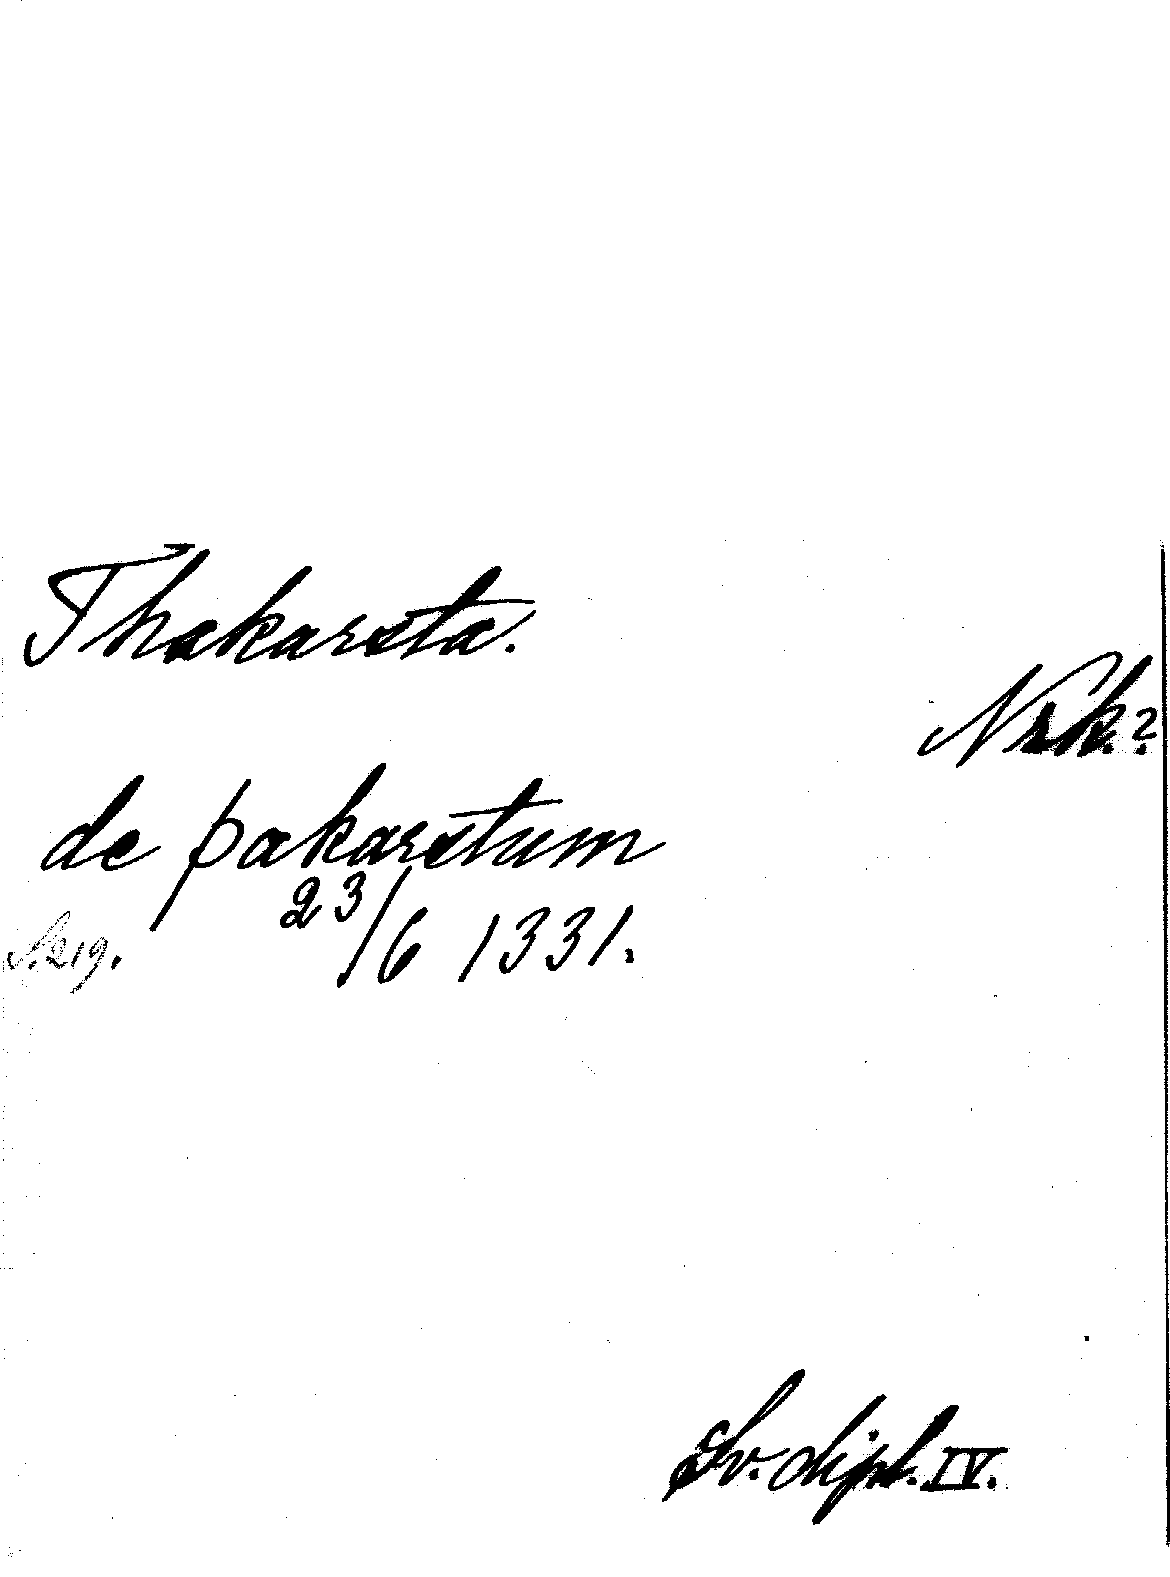 Thakarsta.
Nrk.?
de þakarstum
S. 219.
23/6 1331.
Sv. dipl. IV.